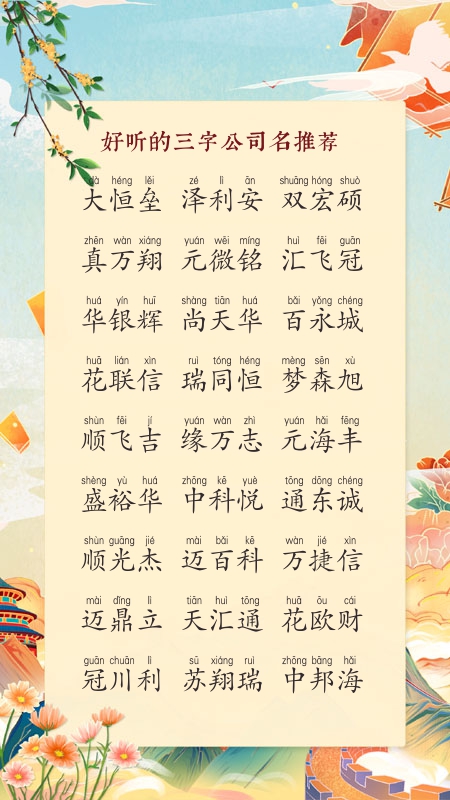 好听的三字公司名推荐
dà héng lěi zé lì ān shuāng hóng shuò
大恒垒 泽利安 双宏硕
zhēn wàn xiáng yuán wēi míng huì fēi guān
真万翔 元微铭 汇飞冠
huá yín huī shàng tiān huá bǎi yǒng chéng
华银辉 尚天华 百永城
huā lián xìn ruì tóng héng mèng sēn xù
花联信 瑞同恒 梦森旭
shùn fēi jí yuán wàn zhì yuán hǎi fēng
顺飞吉 缘万志 元海丰
shèng yù huá zhōng kē yuè tōng dōng chéng
盛裕华 中科悦 通东诚
shùn guāng jié mài bǎi kē wàn jié xìn
顺光杰 迈百科 万捷信
mài dǐng lì tiān huì tōng huā ōu cái
迈鼎立 天汇通 花欧财
guān chuān lì sū xiáng ruì zhōng bāng hǎi
冠川利 苏翔瑞 中邦海